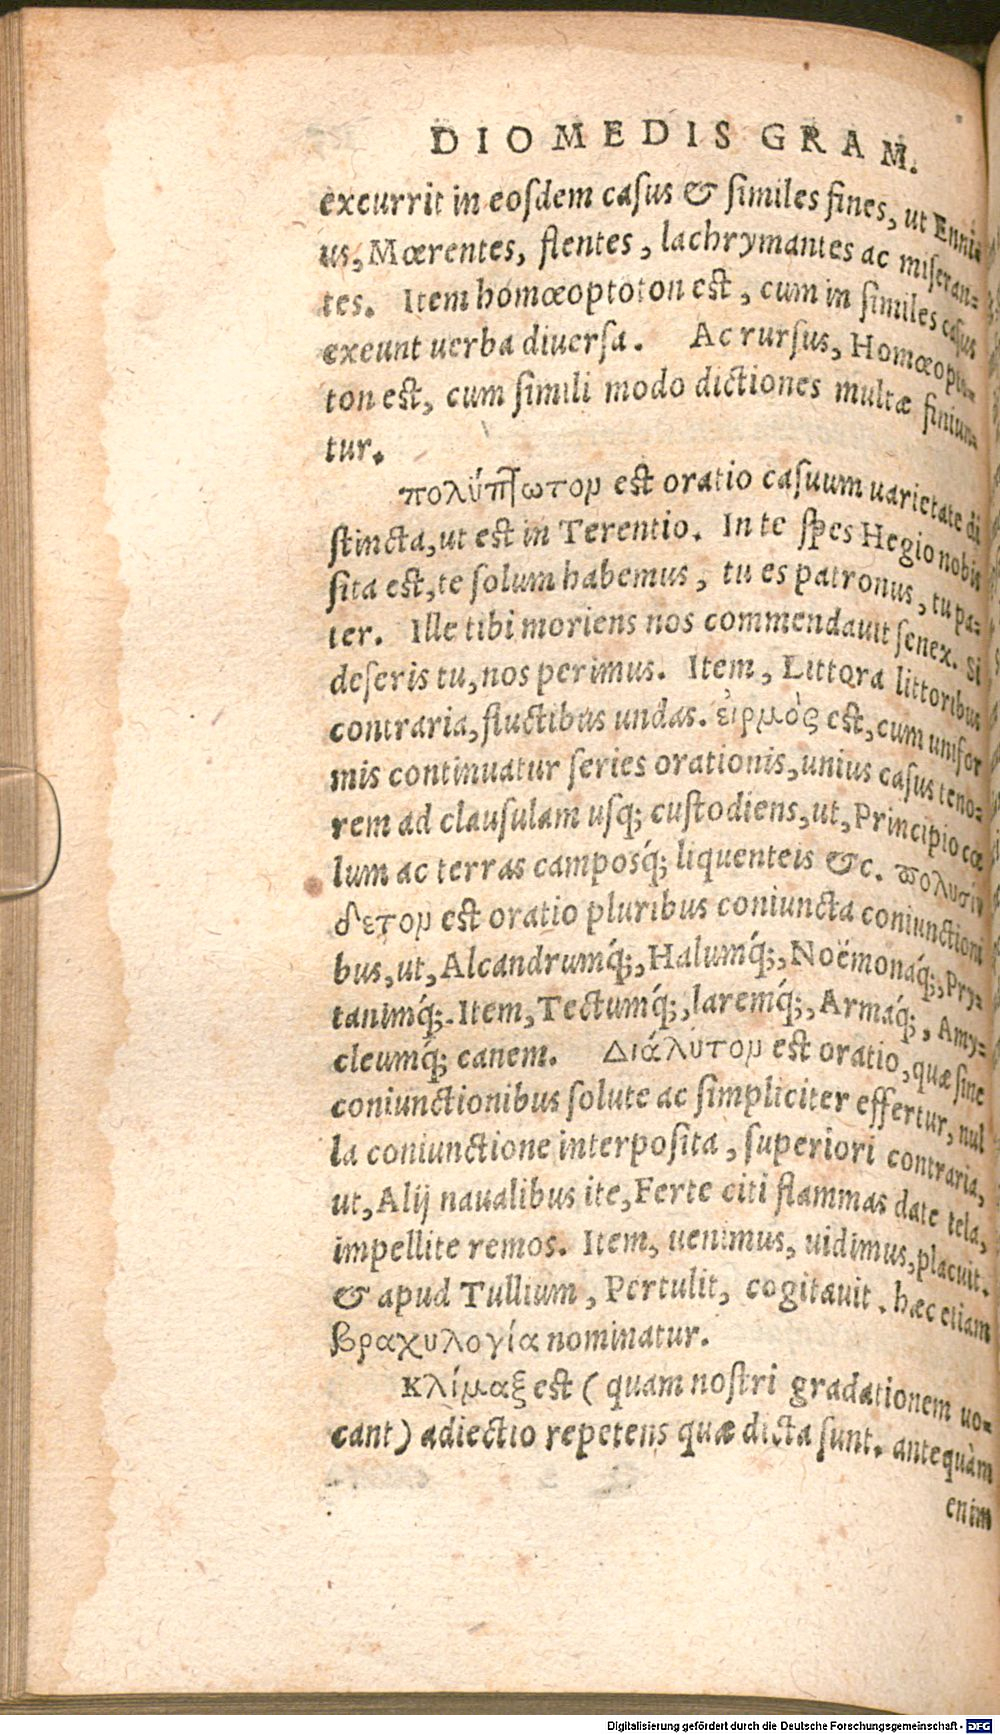 DIOMEDIS GRAM.
excurrit in eoſdem caſus & ſimiles fines, ut Enni-
us, Mœrentes, flentes, lachrymantes ac miſeran-
tes. Item homœoptoton est, cum in ſimiles caſus
exeunt uerba diuerſa. Ac rurſus, Homœopto-
ton est, cum ſimili modo dictiones multæ finiun-
tur.
πολύπτωτον est oratio caſuum uarietate di
ſtincta, ut est in Terentio. In te ſpes Hegio nobis
ſita est, te ſolum habemus, tu es patronus, tu pa-
ter. Ille tibi moriens nos commendauit ſenex. Si
deſeris tu, nos perimus. Item, Littora littoribus
contraria, fluctibus undas. εἱρμὸς est, cum unifor
mis continuatur ſeries orationis, unius caſus teno-
rem ad clauſulam uſq; cuſtodiens, ut, Principio cœ
lum ac terras campoſq́; liquenteis &c. πολυσύν
δετον est oratio pluribus coniuncta coniunctioni
bus, ut, Alcandrumq́;, Halumq́;, Noëmonaq́;, Pry-
tanimq́;. Item, Tectumq́;, laremq́;, Armaq́;, Amy-
cleumq́; canem. Διάλυτον est oratio, quæ ſine
coniunctionibus ſolute ac ſimpliciter effertur, nul
la coniunctione interpoſita, ſuperiori contraria,
ut, Alij naualibus ite, Ferte citi flammas date tela,
impellite remos. Item, uenimus, uidimus, placuit.
& apud Tullium, Pertulit, cogitauit. hæc etiam
βραχυλογία nominatur.
κλίμαξ est (quam noſtri gradationem uo-
cant) adiectio repetens quæ dicta ſunt. antequàm
enim
Digitalisierung gefördert durch die Deutsche Forschungsgemeinschaft - DFG